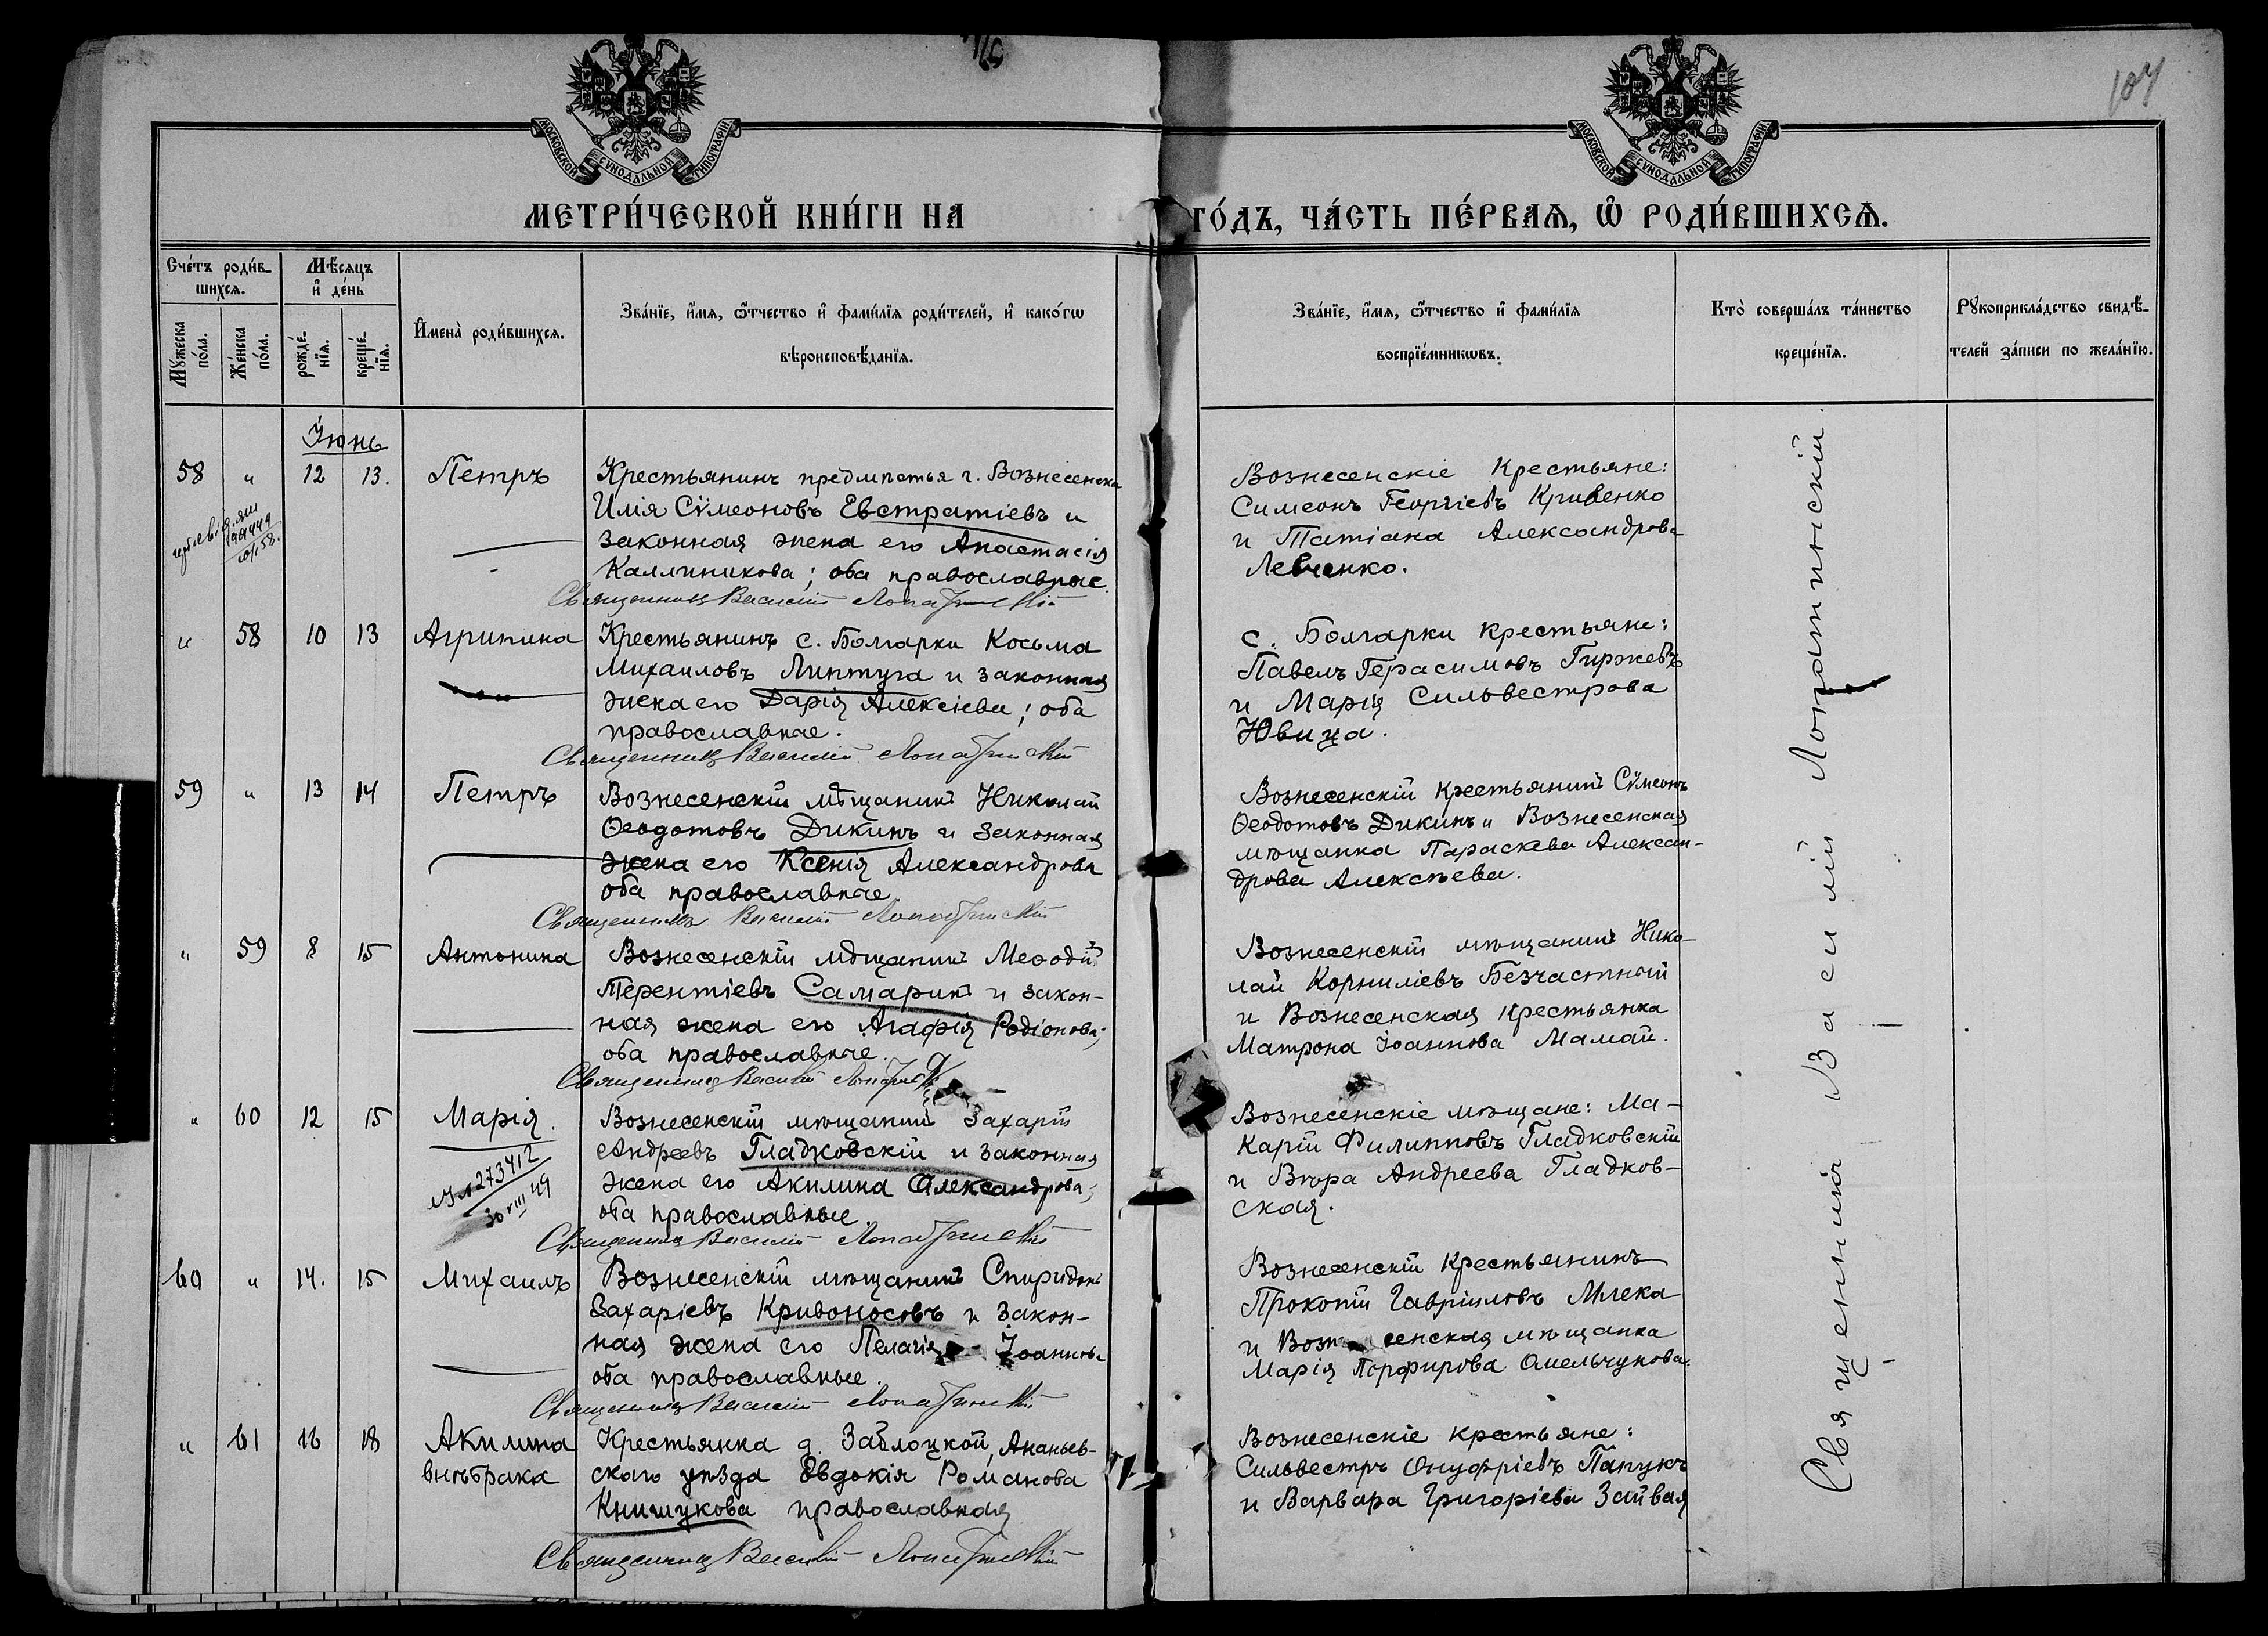 104
МОСКОВСКОЙ СУНОДАЛЬНОЙ ТИПОГРАФІИ.
МОСКОВСКОЙ СУНОДАЛЬНОЙ ТИПОГРАФІИ.
МЕТРИ́ЧЕСКОЙ КНИ́ГИ НА ГО́ДЪ, ЧА́СТЬ ПЕ́РВАѦ, Ѡ РОДИ́ВШИХСѦ.
Сче́тъ роди́вшихсѧ.
Мꙋ́жеска по́ла.
Же́нска по́ла.
Мѣ́сѧцъ и҆ де́нь
рожде́нїѧ.
креще́нїѧ.
И҆мена̀ роди́вшихсѧ.
Зва́нїе, и҆́мѧ, ѻ҆́тчество и҆ фами́лїѧ роди́телей, и҆ како́гѡ
вѣроисповѣ́данїѧ.
Зва́нїе, и҆́мѧ, ѻ҆́тчество и҆ фами́лїѧ
воспрїе́мникѡвъ.
Кто̀ соверша́лъ та́инство
креще́нїѧ.
Рꙋкоприкла́дство свидѣ́-
телей за́писи по жела́нїю.
Іюнь
58 " 12 13. Петръ
Крестьянинъ предмѣстья г. Вознесенска
Илія Сѵмеоновъ Евстратіевъ и
законная жена его Анастасія
Каллиникова; оба православные.
Священникъ Василій Лопатинскій
Вознесенскіе Крестьяне:
Симеонъ Георгіевъ Кривенко
и Татіана Александрова
Левченко.
" 58 10 13 Агрипина
Крестьянинъ с. Болгарки Косьма
Михаиловъ Липтуга и законная
жена его Дарія Алексіева; оба
православные.
Священникъ Василій Лопатинскій
с. Болгарки крестьяне:
Павелъ Герасимовъ Гиржевъ
и Марія Сильвестрова
Ювица.
59 " 13 14 Петръ
Вознесенскій мѣщанинъ Николай
Ѳеодотовъ Дикинъ и законная
жена его Ксенія Александрова
оба православные
Священникъ Василій Лопатинскій
Вознесенскій крестьянинъ Сѵмеонъ
Ѳеодотовъ Дикинъ и Вознесенская
мѣщанка Параскева Алексан-
дрова Алексѣева.
" 59 8 15 Антонина
Вознесенскій мѣщанинъ Меѳодій
Терентіевъ Самаринъ и закон-
ная жена его Агафія Родіонова;
оба православные.
Священникъ Василій Лопатинскій
Вознесенскій мѣщанинъ Нико-
лай Корниліевъ Безчастный
и Вознесенская крестьянка
Матрона Іоаннова Мамай.
" 60 12 15 Марія.
273412
30 VIII 49
Вознесенскій мѣщанинъ Захарій
Андреевъ Гладковскій и законная
жена его Акилина Александрова;
оба православные.
Священникъ Василій Лопатинскій
Вознесенскіе мѣщане: Ма-
карій Филипповъ Гладковскій
и Вѣра Андреева Гладков-
ская.
60 " 14. 15 Михаилъ
Вознесенскій мѣщанинъ Спиридонъ
Захаріевъ Кривоносовъ и закон-
ная жена его Пелагія Іоаннова
оба православные.
Священникъ Василій Лопатинскій
Вознесенскій крестьянинъ
Прокопій Гавріиловъ Млека
и Вознесенская мѣщанка
Марія Порфирова Омельчукова.
" 61 16 18 Акилина
внѣ брака
Крестьянка д. Заблоцкой, Ананьев-
скаго уѣзда Евдокія Романова
Книшукова православная
Священникъ Василій Лопатинскій
Вознесенскіе крестьяне:
Сильвестръ Онуфріевъ Папукъ
и Варвара Григоріева Зайвая
Священникъ Василій Лопатинскій.